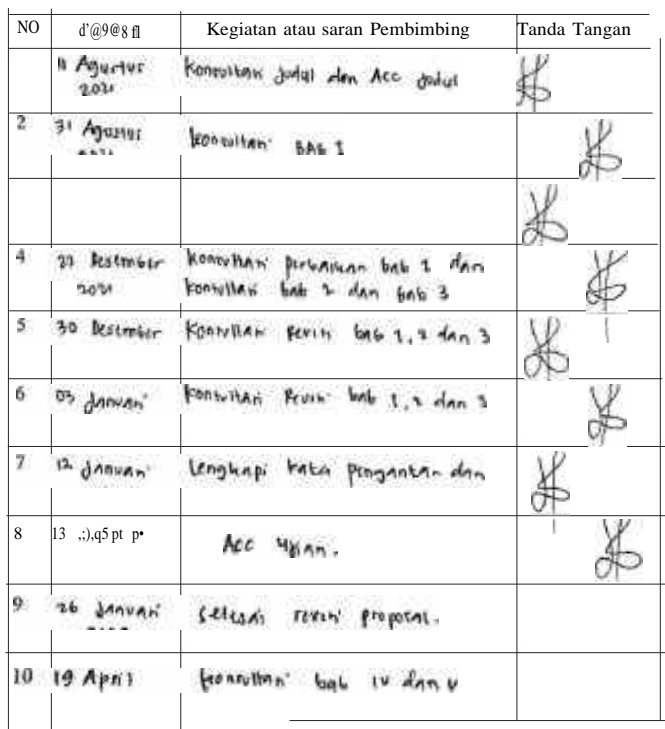 NO d'@9@8 fl Kegiatan atau saran Pembimbing Tanda Tangan
11 Agustus 2021 Konsultasi judul dan Acc judul
2 31 Agustus Konsultasi BAB 1
4 27 Desember 2021 Konsultasi perbaikan bab 1 dan
konsultasi bab 2 dan bab 3
5 30 Desember Konsultasi Revisi bab 1, 2 dan 3
6 03 Januari Konsultasi Revisi bab 1, 2 dan 3
7 12 Januari Lengkapi kata pengantar dan
8 13 .;),q5 pt p• Acc Ujian.
9 26 Januari Selesai revisi proposal.
10 19 April Konsultasi bab IV dan V